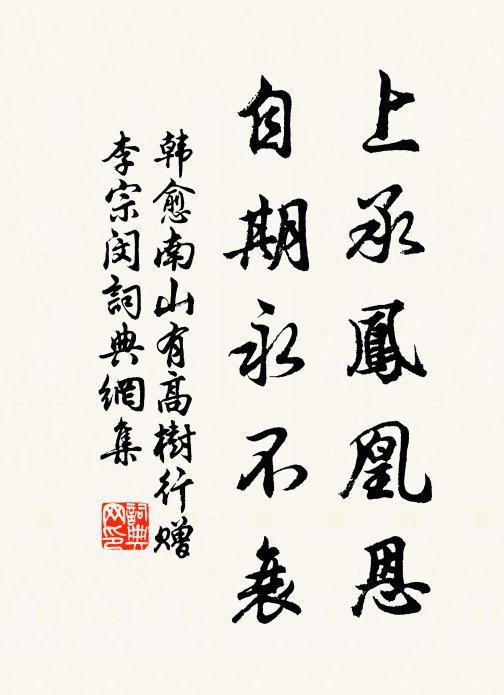 上承鳳凰恩
自期永不衰
韩愈南山有高樹行赠
李宗闵詞典網集
詞典
网印